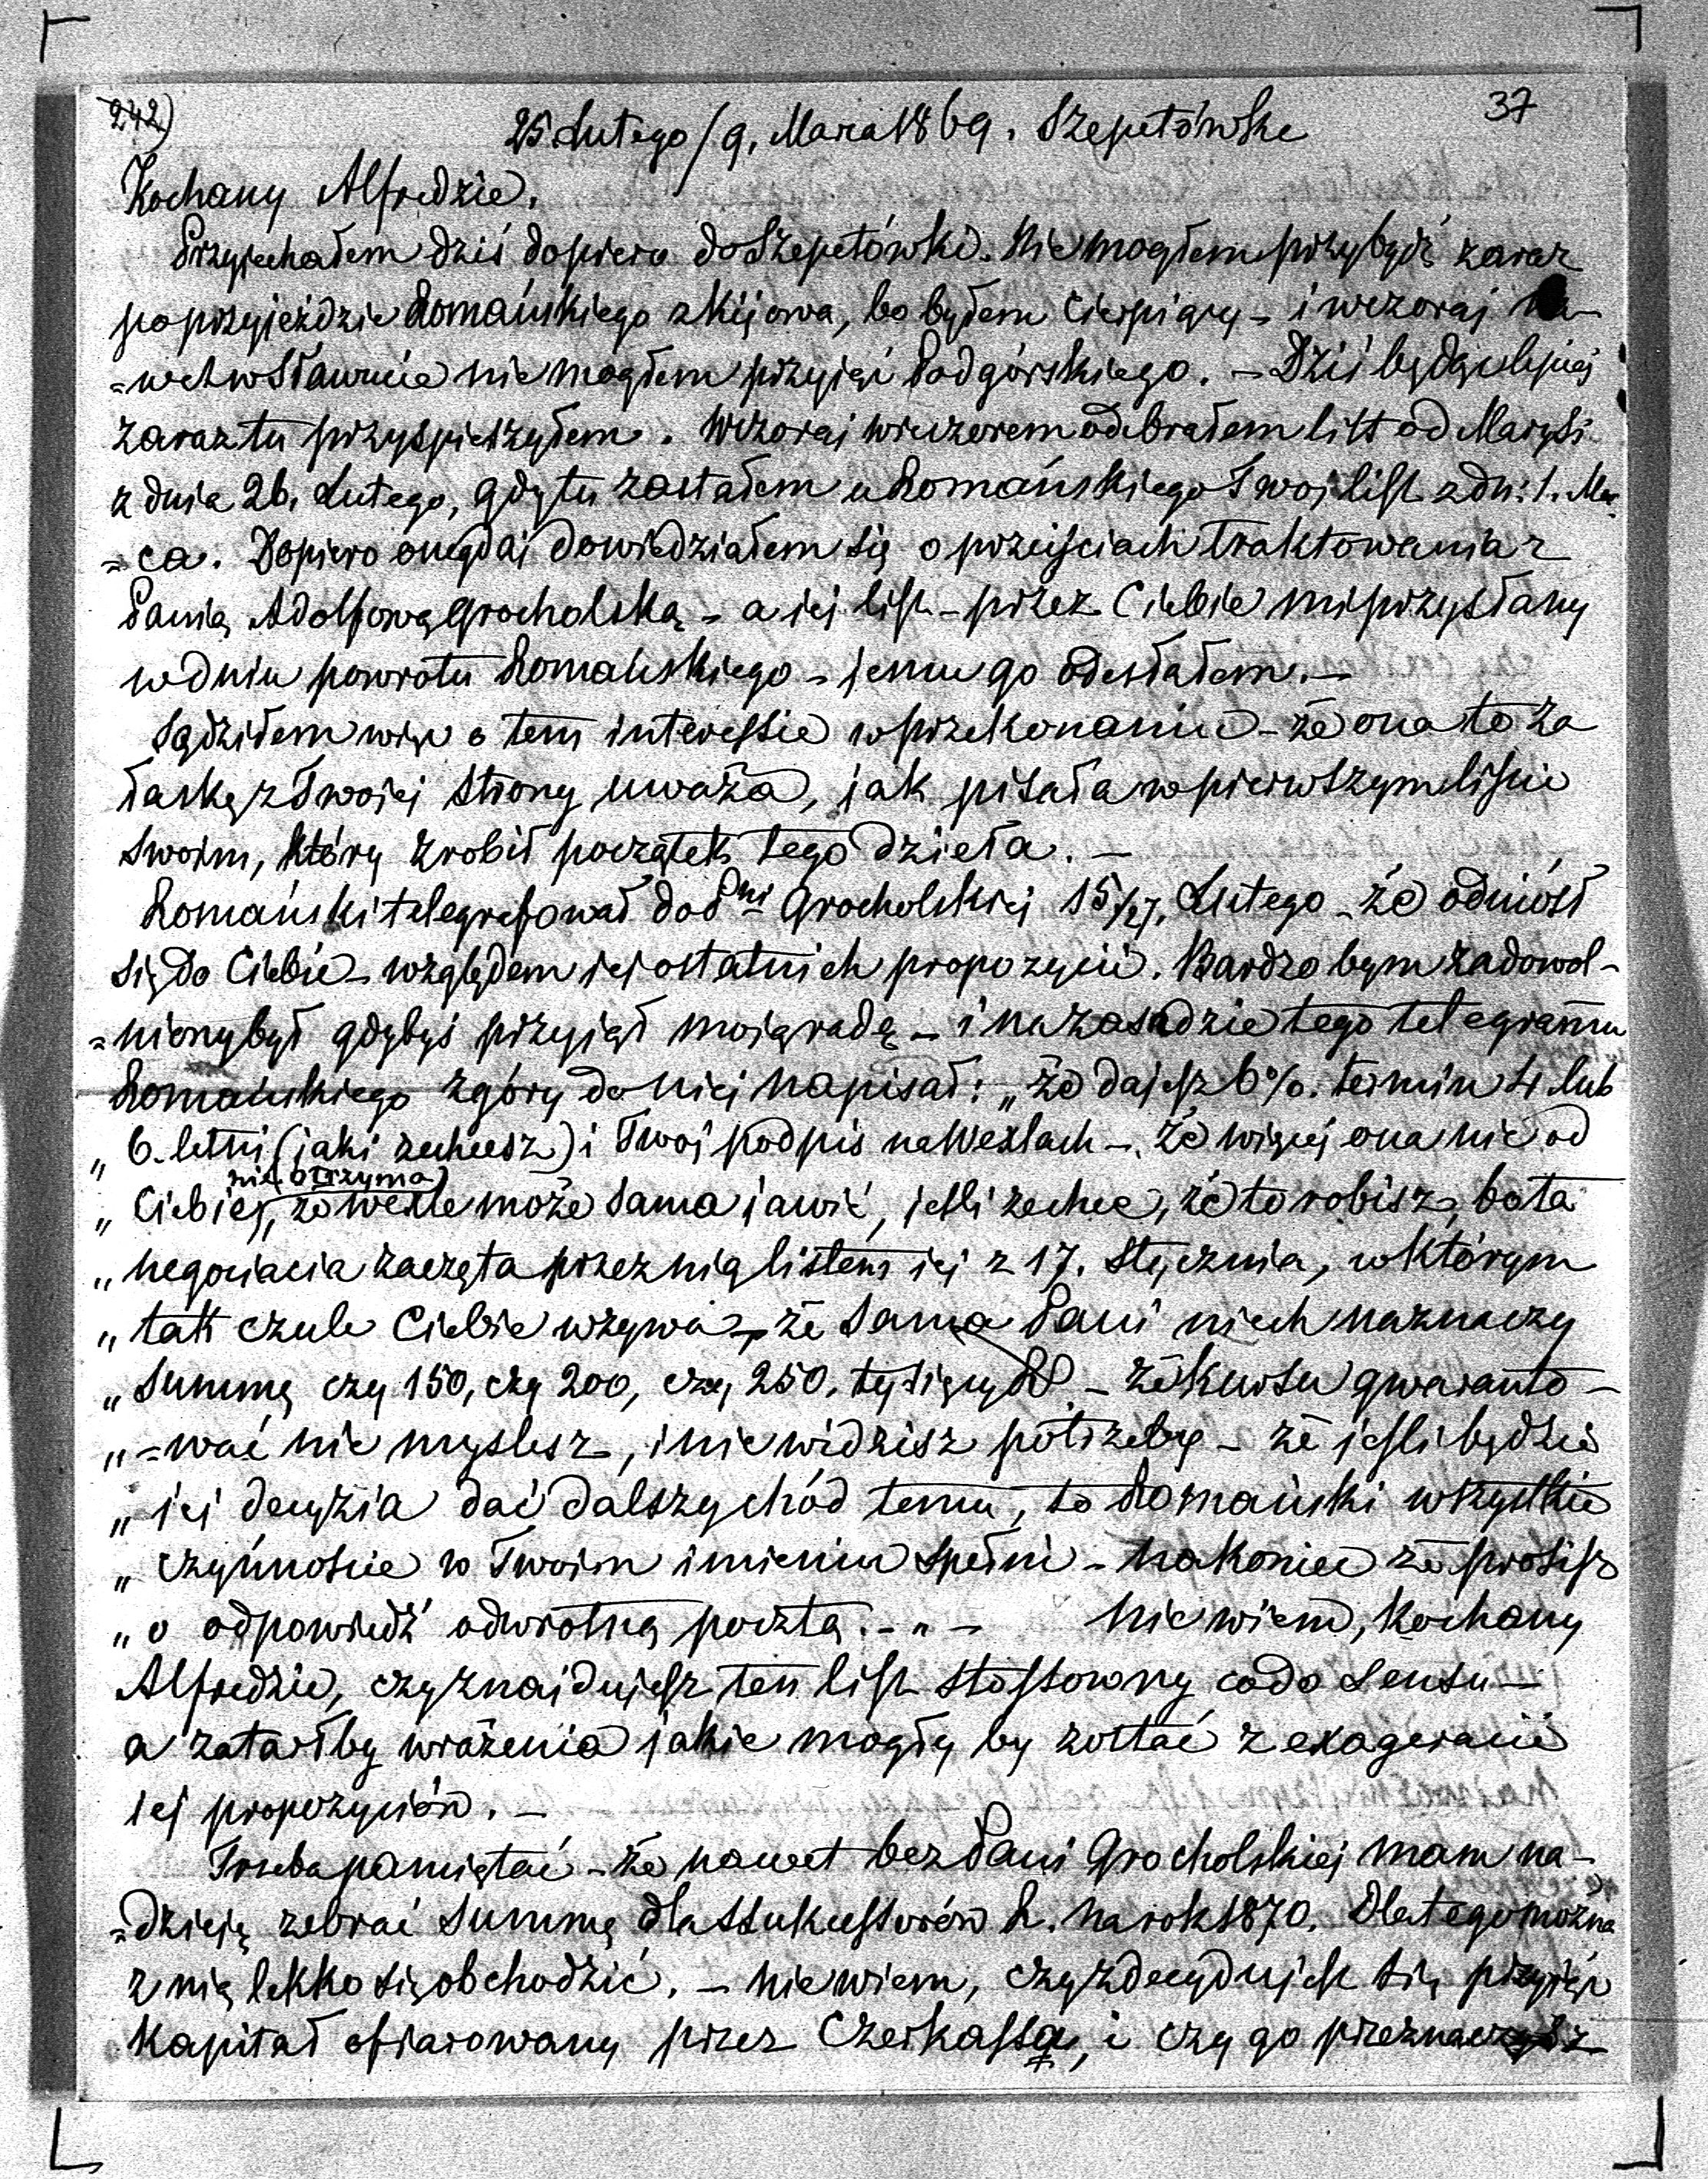 242) 37
25 Lutego/9. Marca 1869. Szepetówka
Kochany Alfredzie.
Przyjechałem dziś dopiero do Szepetówki. Nie mogłem przybydź zaraz
po przyjeździe Romańskiego z Kijowa, bo byłem cierpiący – i wczoraj na-
=wet w Sławucie nie mogłem przyjąć Podgórskiego. – Dziś będąc lepiej
zaraz tu przyspieszyłem. Wczoraj wieczorem odebrałem list od Marysi
z dnia 26. Lutego, gdy tu zastałem u Romańskiego Twoj list z dn: 1. Mar-
=ca. Dopiero onegdaj dowiedziałem się o przejściach traktowania z
Panią Adolfową Grocholską – a jej list – przez Ciebie mi przysłany
w dniu powrotu Romańskiego – jemu go odesłałem. –
Sądziłem więc o tem interessie w przekonaniu – że ona to za
łaskę z Twojej strony uważa, jak pisała w pierwszym liście
swoim, który zrobił początek tego dzieła. –
Romański telegrafował do Pni Grocholskiej 15/27. Lutego – że odniósł
się do Ciebie – względem jej ostatnich propozycii. Bardzo bym zadowol-
=niony był gdybyś przyjął moją radę – i na zasadzie tego telegramu
Romańskiego zgóry do niej napisał: „że dajesz 6%. termin 4 lub
„6. letni (jaki zechcesz) i Twoj podpis na Wexlach –. że więcej ona nic od
nie otrzyma
„Ciebie, że wexle może sama jawić, jesli zechce, że to robisz, bo ta
„negociacia zaczęta przez nią listem jej z 17. Stycznia, w którym
„tak czule Ciebie wzywa – że sama Pani niech naznaczy
„Summę czy 150, czy 200, czy 250. tysięcy – że kursu gwaranto-
„=wać nie myslesz, i nie widzisz potrzeby – że jesli będzie
„jej decyzia dać dalszy chód temu, to Romański wszystkie
„czynnoście w Twoim imieniu spełni – nakoniec że prosisz
„o odpowiedź odwrotną pocztą. – „ – Nie wiem, Kochany
Alfredzie, czy znajdujesz ten list stossowny co do sensu –
a zatarłby wrażenia jakie mogły by zostać z exageracii
jej propozycion. –
Trzeba pamiętać – że nawet bez Pani Grocholskiej mam na-
=dzieję zebrać Summę dla Sukcessorów L. na rok 1870. Dlatego można
z nią lekko się obchodzić. – Nie wiem, czy zdecydujesz się przyjąć
Kapitał ofiarowany przez Czerkassa, i czy go przeznaczysz